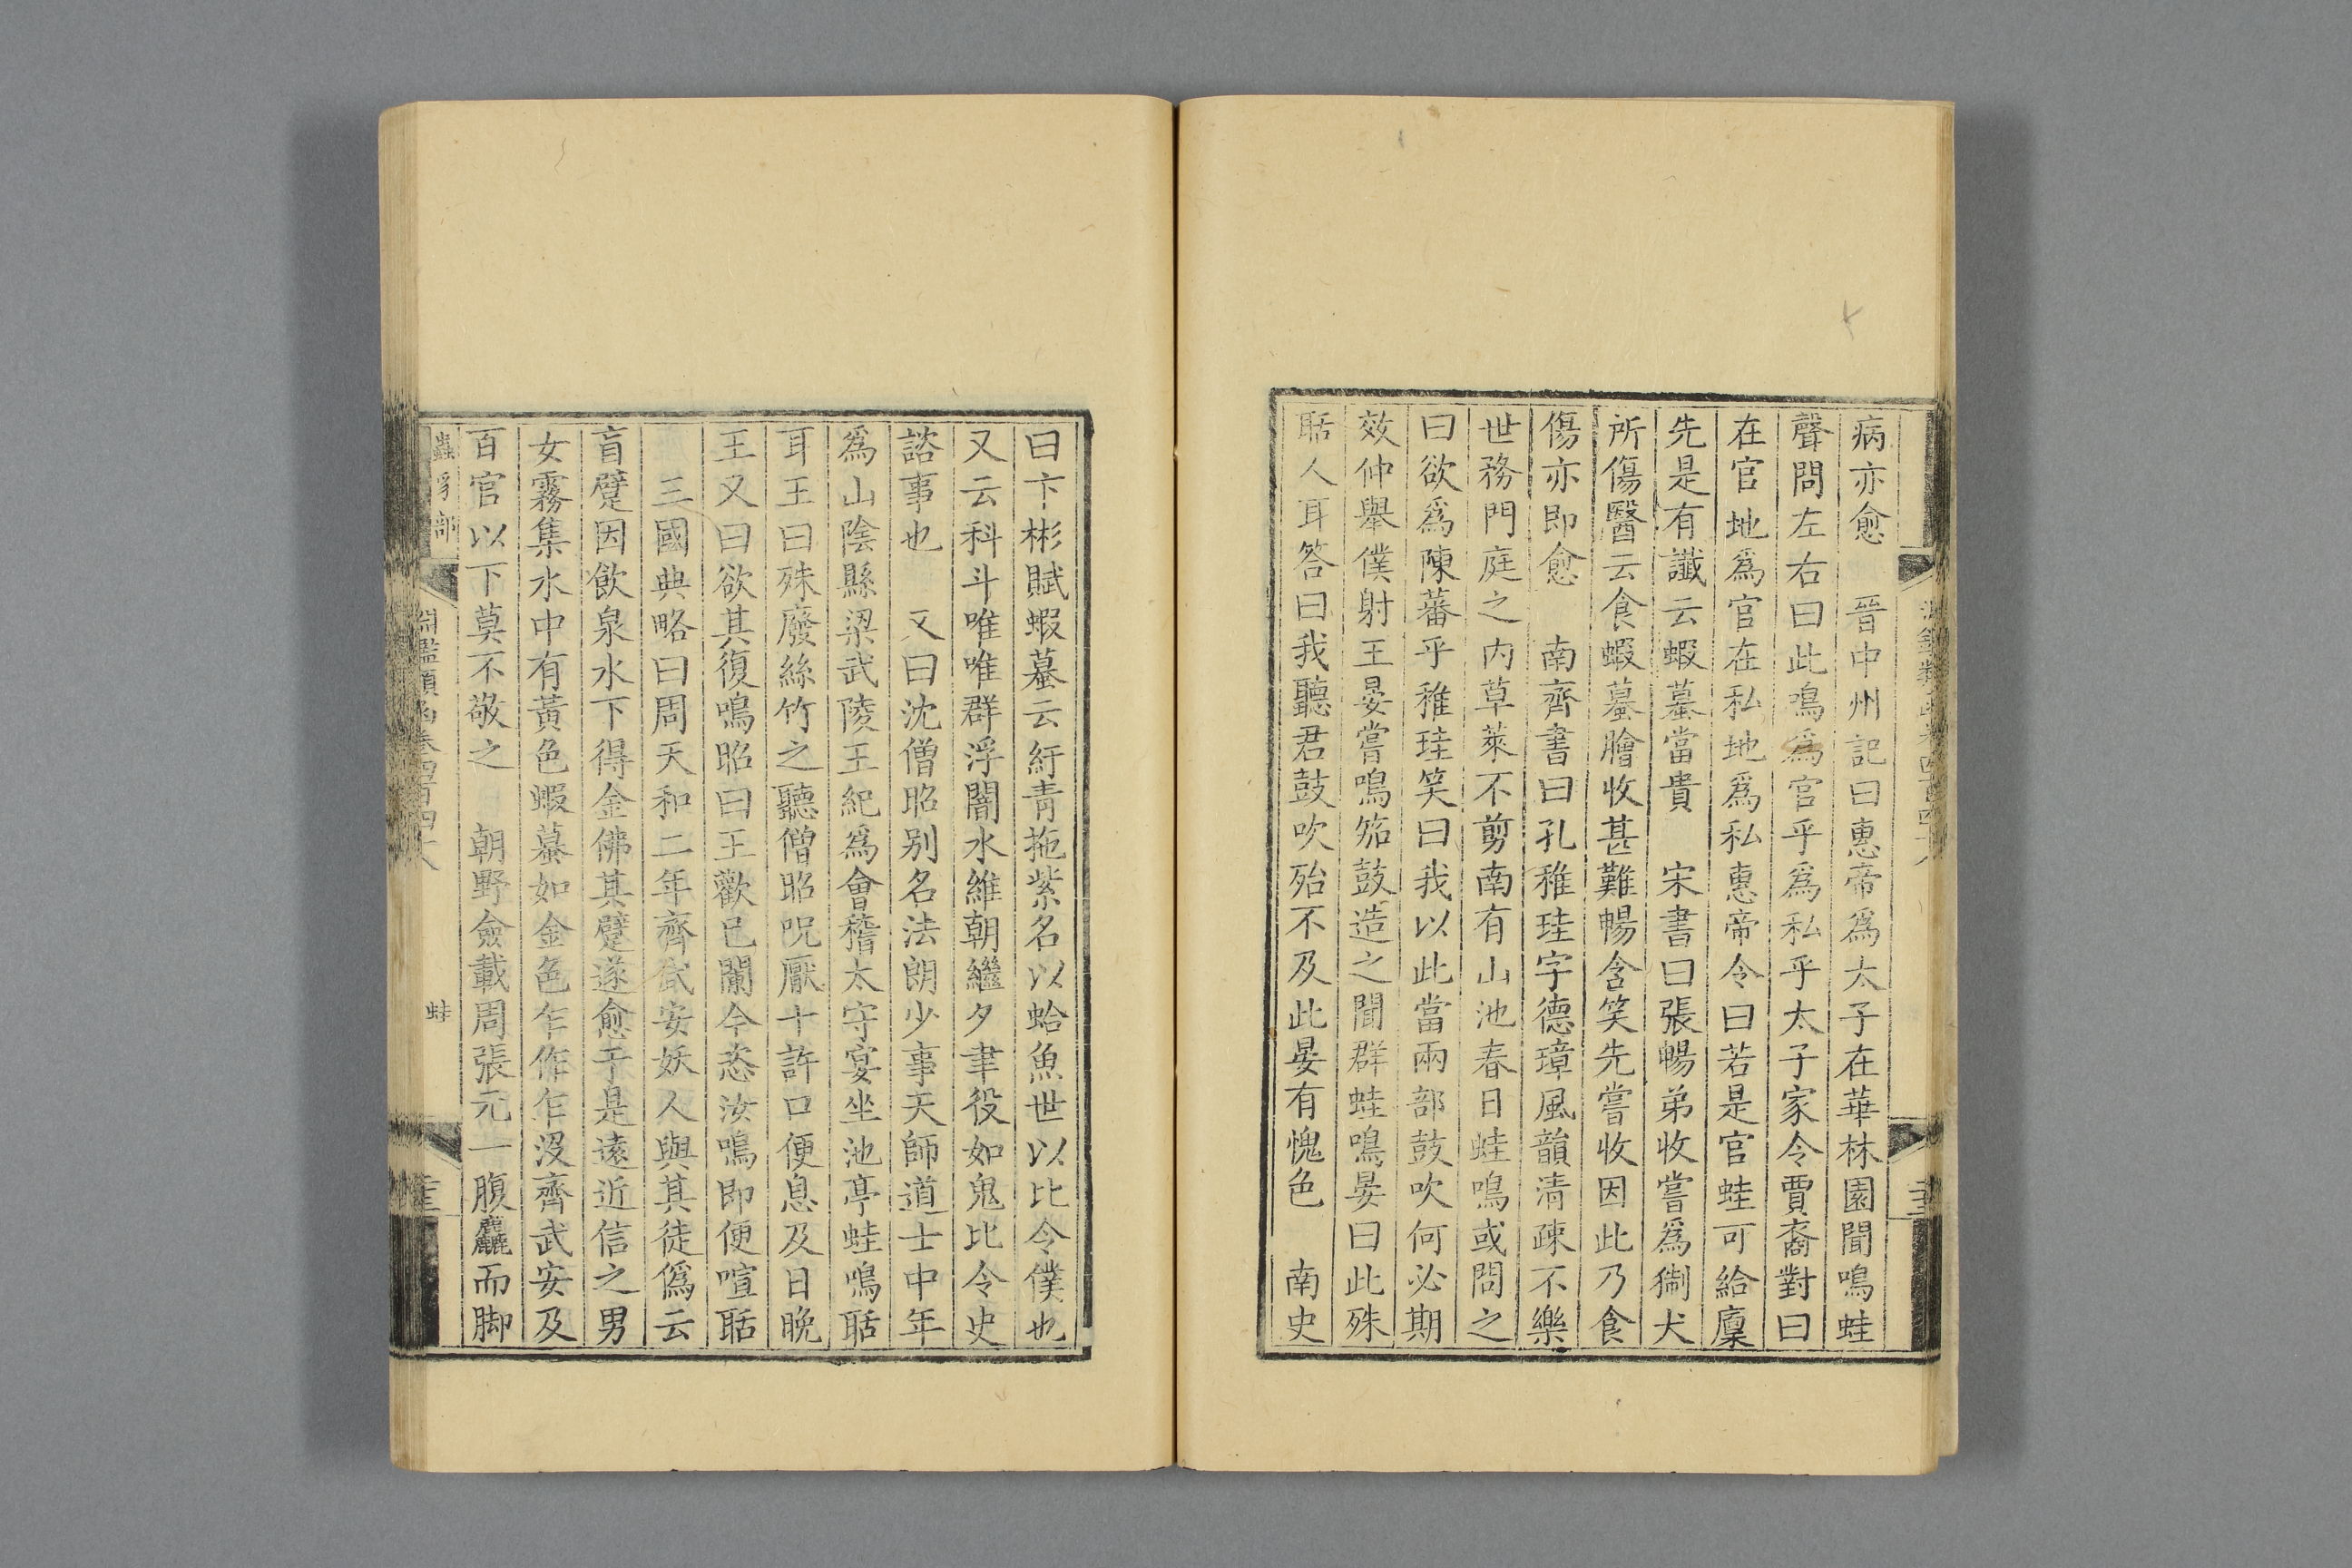 病亦愈　晉中州記曰惠帝爲太子在華林園聞鳴蛙
聲問左右曰此鳴爲官乎爲私乎太子家令賈裔對曰
在官地爲官在私地爲私惠帝令曰若是官蛙可給廩
先是有讖云蝦蟇當貴　宋書曰張暢弟收嘗爲猘犬
所傷醫云食蝦蟇膾收甚難暢含笑先嘗收因此乃食
傷亦即愈　南齊書曰孔稚珪字德璋風韻清疎不樂
世務門庭之内草萊不剪南有山池春日蛙鳴或問之
曰欲爲陳蕃乎稚珪笑曰我以此當兩部鼓吹何必期
效仲舉僕射王晏嘗鳴笳鼓造之聞群蛙鳴晏曰此殊
聒人耳答曰我聽君鼓吹殆不及此晏有愧色　南史
曰卞彬賦蝦蟇云紆青拖紫名以蛤魚世以比令僕也
又云科斗唯唯群浮闇水維朝繼夕聿役如鬼比令史
諮事也　又曰沈僧昭别名法朗少事天師道士中年
爲山陰縣梁武陵王紀爲會稽太守宴坐池亭蛙鳴聒
耳王曰殊廢絲竹之聽僧昭呪厭十許口便息及日晚
王又曰欲其復鳴昭曰王歡已闌今恣汝鳴即便喧聒
三國典略曰周天和二年齊武安妖人與其徒僞云
盲躄因飲泉水下得金佛其躄遂愈于是遠近信之男
女霧集水中有黃色蝦蟇如金色乍作乍没齊武安及
百官以下莫不敬之　朝野僉載周張元一腹麤而脚
蟲豸部
淵鑑類函卷四百四十八
蛙